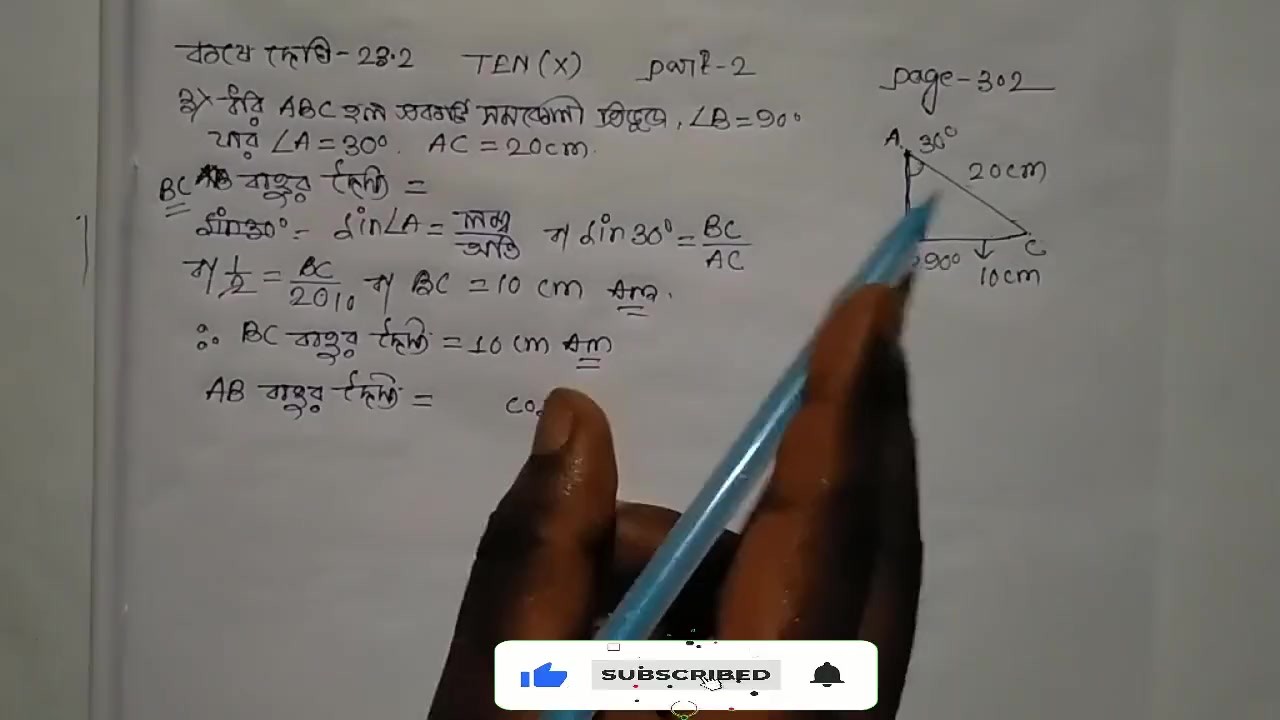 কষে দেখি-23.2 TEN(X) part-2
page-302
3) ধরি ABC হল একটি সমকোণী ত্রিভুজ, ∠B=90°
যার ∠A=30°. AC=20cm.
BC বাহুর দৈর্ঘ্য =
sin30°= sin∠A = লম্ব/অতি বা sin30° = BC/AC
বা 1/2 = BC/20 10 বা BC = 10 cm Ans.
∴ BC বাহুর দৈর্ঘ্য = 10 cm Ans
AB বাহুর দৈর্ঘ্য = cos
A 30°
20cm
C
90°
10cm
SUBSCRIBED